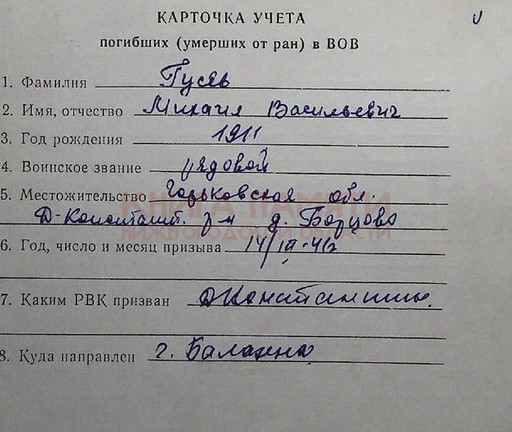 КАРТОЧКА УЧЕТА
погибших (умерших от ран) в ВОВ
1. Фамилия Гусев
2. Имя, отчество Михаил Васильевич
3. Год рождения 1911
4. Воинское звание рядовой
5. Местожительство Горьковская обл.
Д-Констант. р-н д. Борцово
КНИГА ПАМЯТИ
НИЖЕГОРОДСКОЙ ОБЛАСТИ
6. Год, число и месяц призыва 14/III-42
7. Каким РВК призван
8. Куда направлен г. Балахна